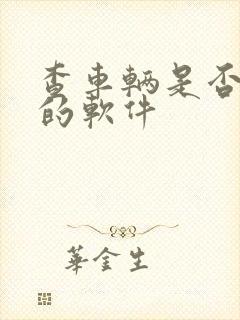 查車輌是否
的軟件
華金生